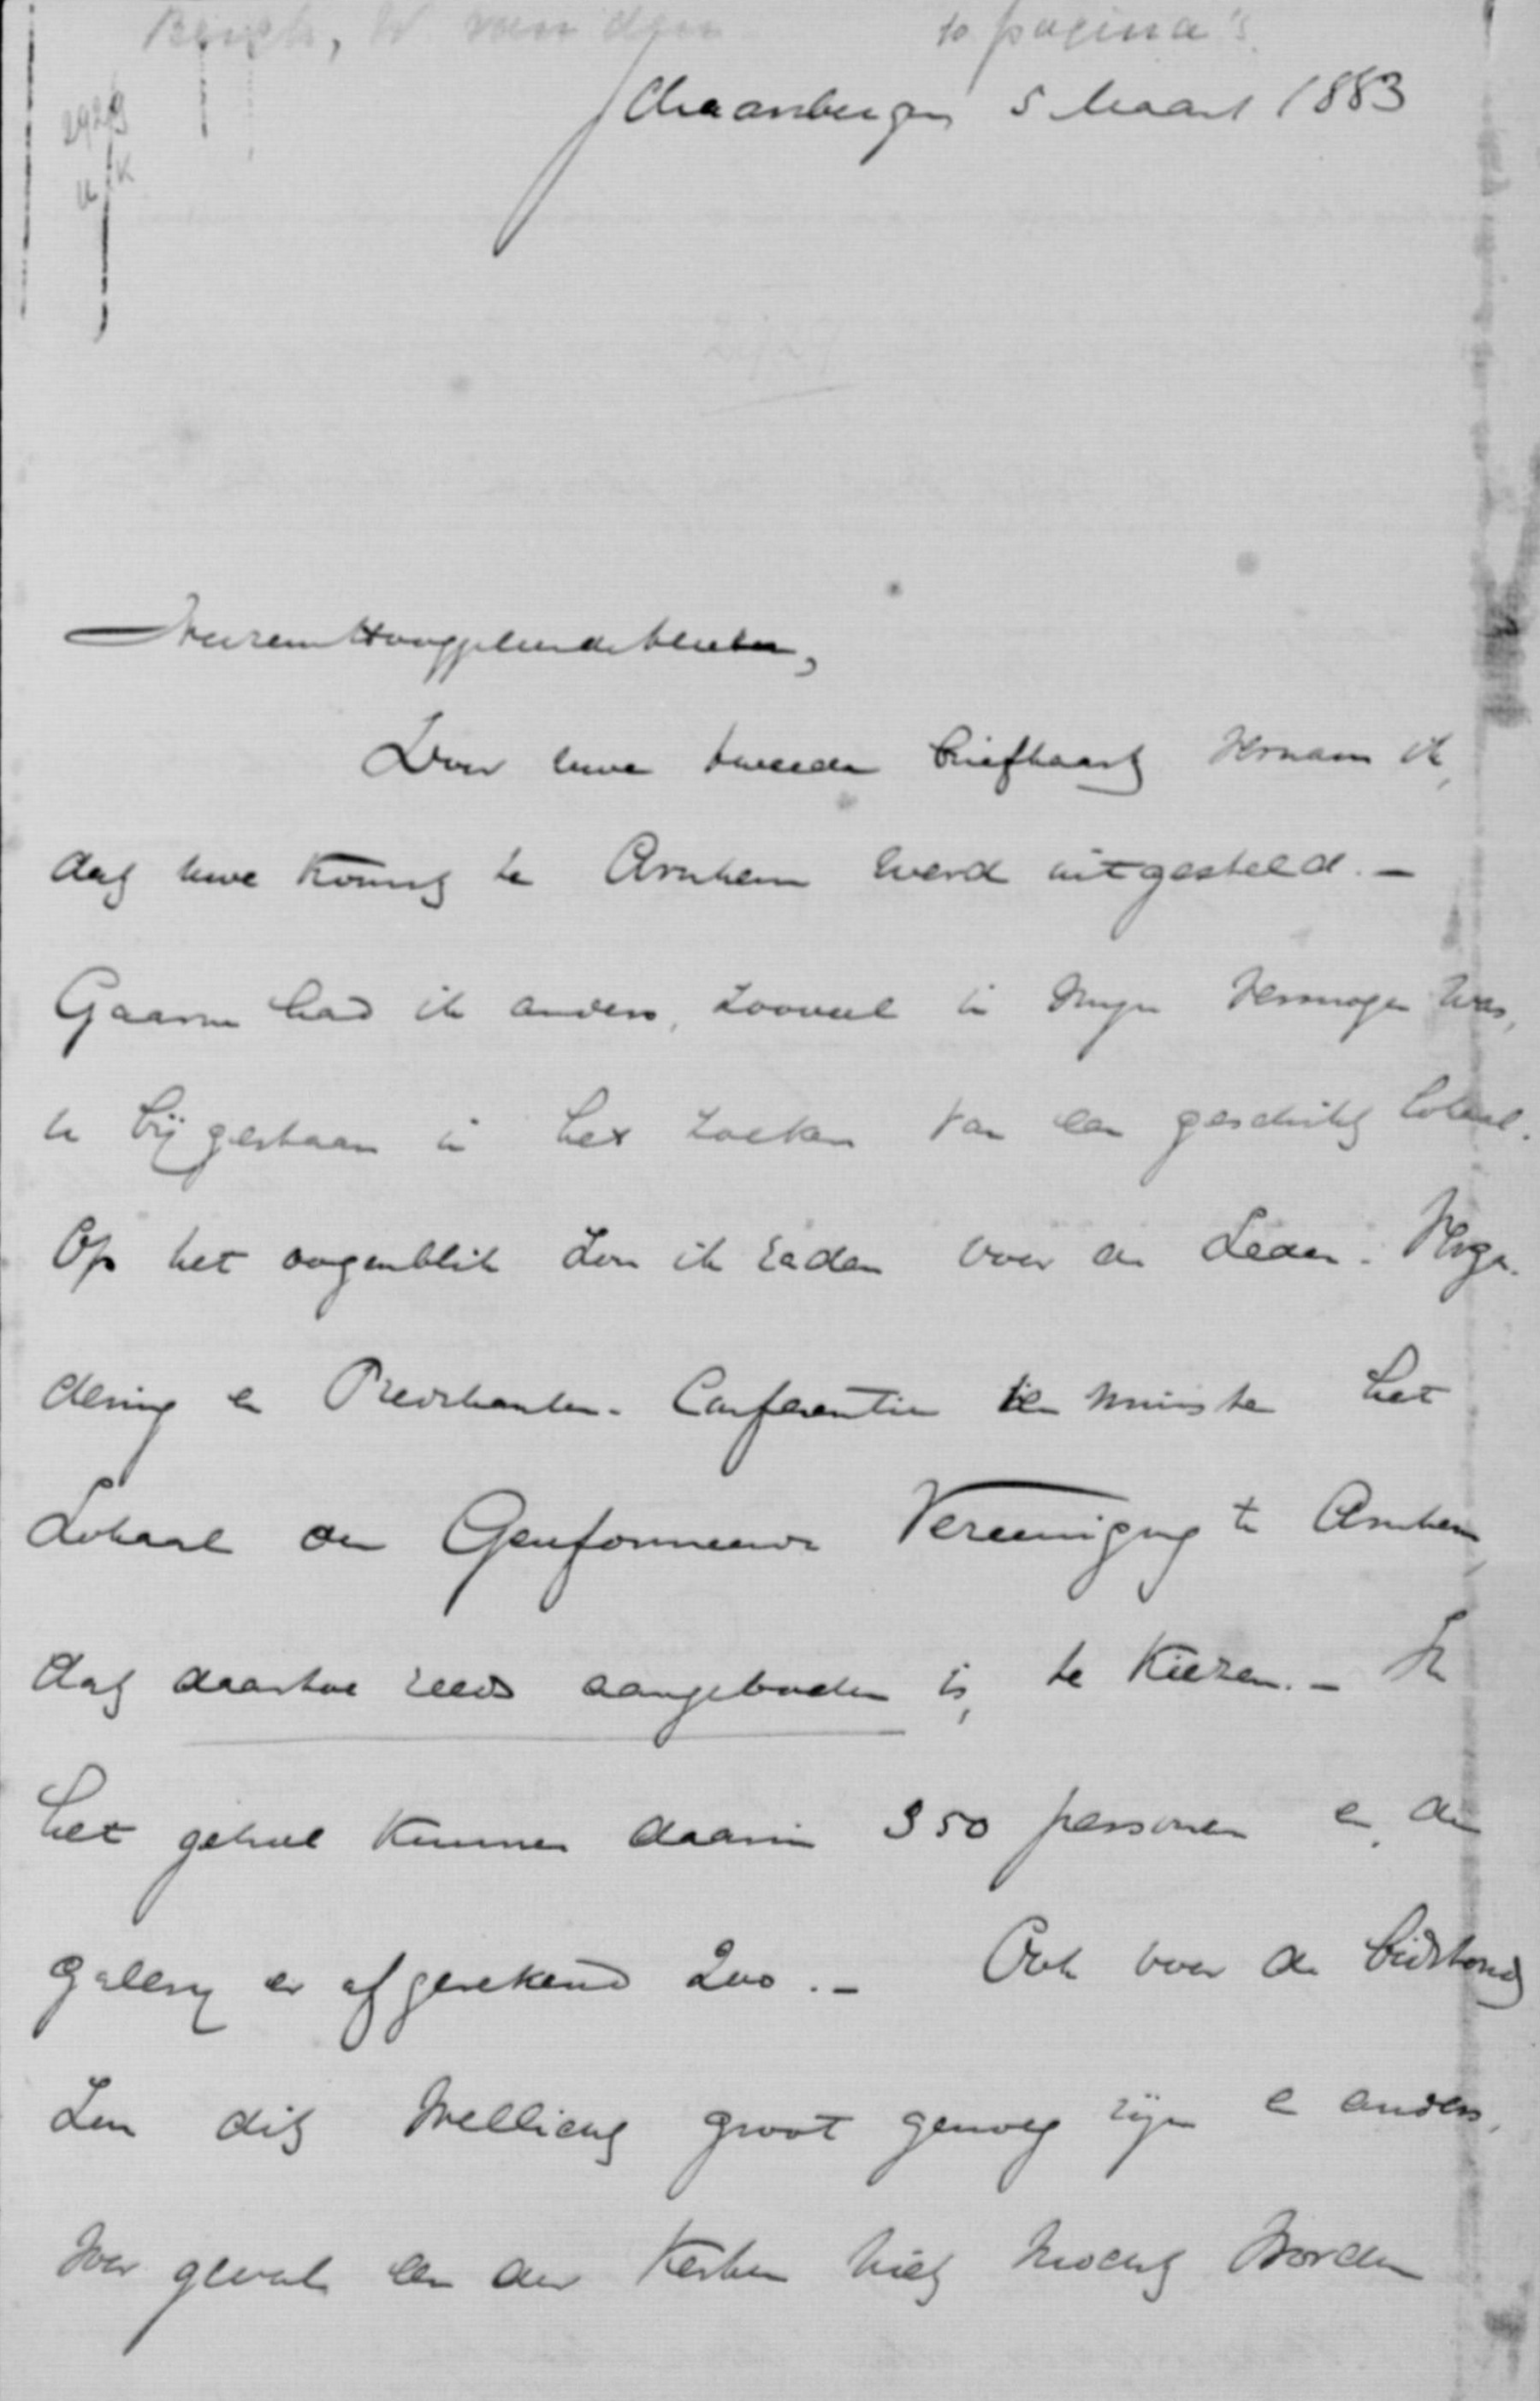 Bergh, W van den 10 pagina's
Schaarsbergen 5 Maart 1883
2929
WelEerw. Hooggeleerde Heeren,
Door uwe tweede briefkaart vernam ik,
dat uwe komst te Arnhem werd uitgesteld. —
Gaarne had ik anders, zooveel in mijn vermogen was,
u bijgestaan in het zoeken van een geschikt lokaal.
Op het oogenblik zou ik raden voor de Leden-Verga-
dering en Predikanten-Conferentie ten minste het
Lokaal der Gereformeerde Vereeniging te Arnhem,
dat daartoe reeds aangeboden is, te kiezen. — In
het geheel kunnen daarin 350 personen en de
galerij er afgerekend 200. — Ook voor de bidstond
zou dit wellicht groot genoeg zijn en anders,
voor geval een der kerken niet mocht worden